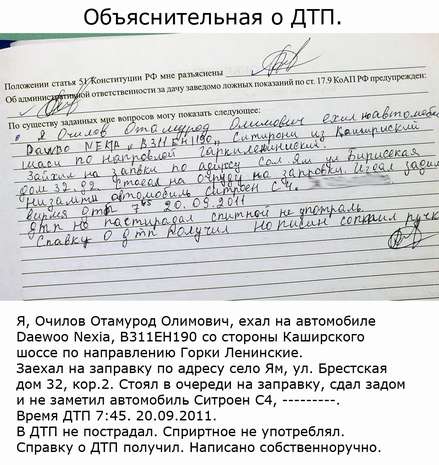 Объяснительная о ДТП.
Положении статья 51 Конституции РФ мне разъяснены
Об административной ответственности за дачу заведомо ложных показаний по ст. 17.9 КоАП РФ предупрежден:
По существу заданных мне вопросов могу показать следующее:
я Очилов Отамурод Олимович ехал на автомобиле
Дароо NEXIA, В311ЕН190, ситирони из Кашириский
шаси по направлой Гаркиленинский
Заихал на заправки по адиресу сол Ям ул Бирисская
дом 32, 
Низамил автомобиль Ситроен С4,
время ДТП 7 45 20.09.2011
ДТП не пастирадал спитной не упатраль
Справку О ДТП получил
Я, Очилов Отамурод Олимович, ехал на автомобиле
Daewoo Nexia, В311ЕН190 со стороны Каширского
шоссе по направлению Горки Ленинские.
Заехал на заправку по адресу село Ям, ул. Брестская
дом 32, кор.2. Стоял в очереди на заправку, сдал задом
и не заметил автомобиль Ситроен С4, ---------.
Время ДТП 7:45. 20.09.2011.
В ДТП не пострадал. Сприртное не употреблял.
Справку о ДТП получил. Написано собственноручно.